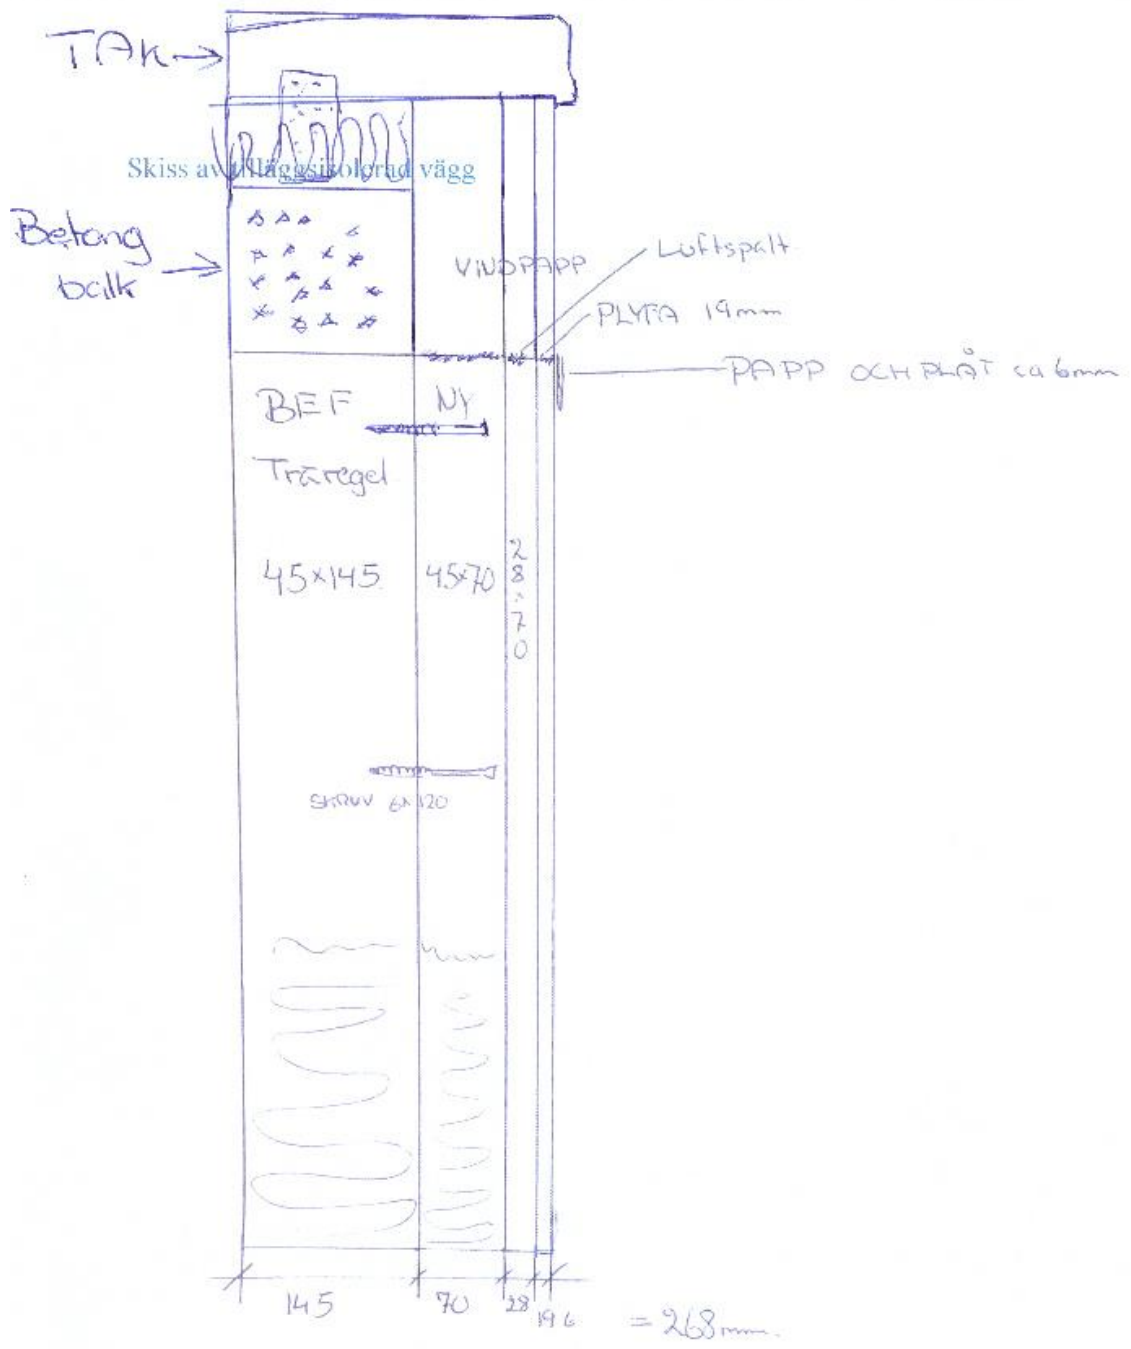 TAK
Skiss av tilläggsisolerad vägg
Betong
balk
VINDPAPP
Luftspalt
PLYFA 19mm
PAPP OCH PLÅT ca 6mm
BEF
NY
Träregel
45x145
45x70
28.70
SKRUV 6x120
145
70
28
19 6
= 268mm.